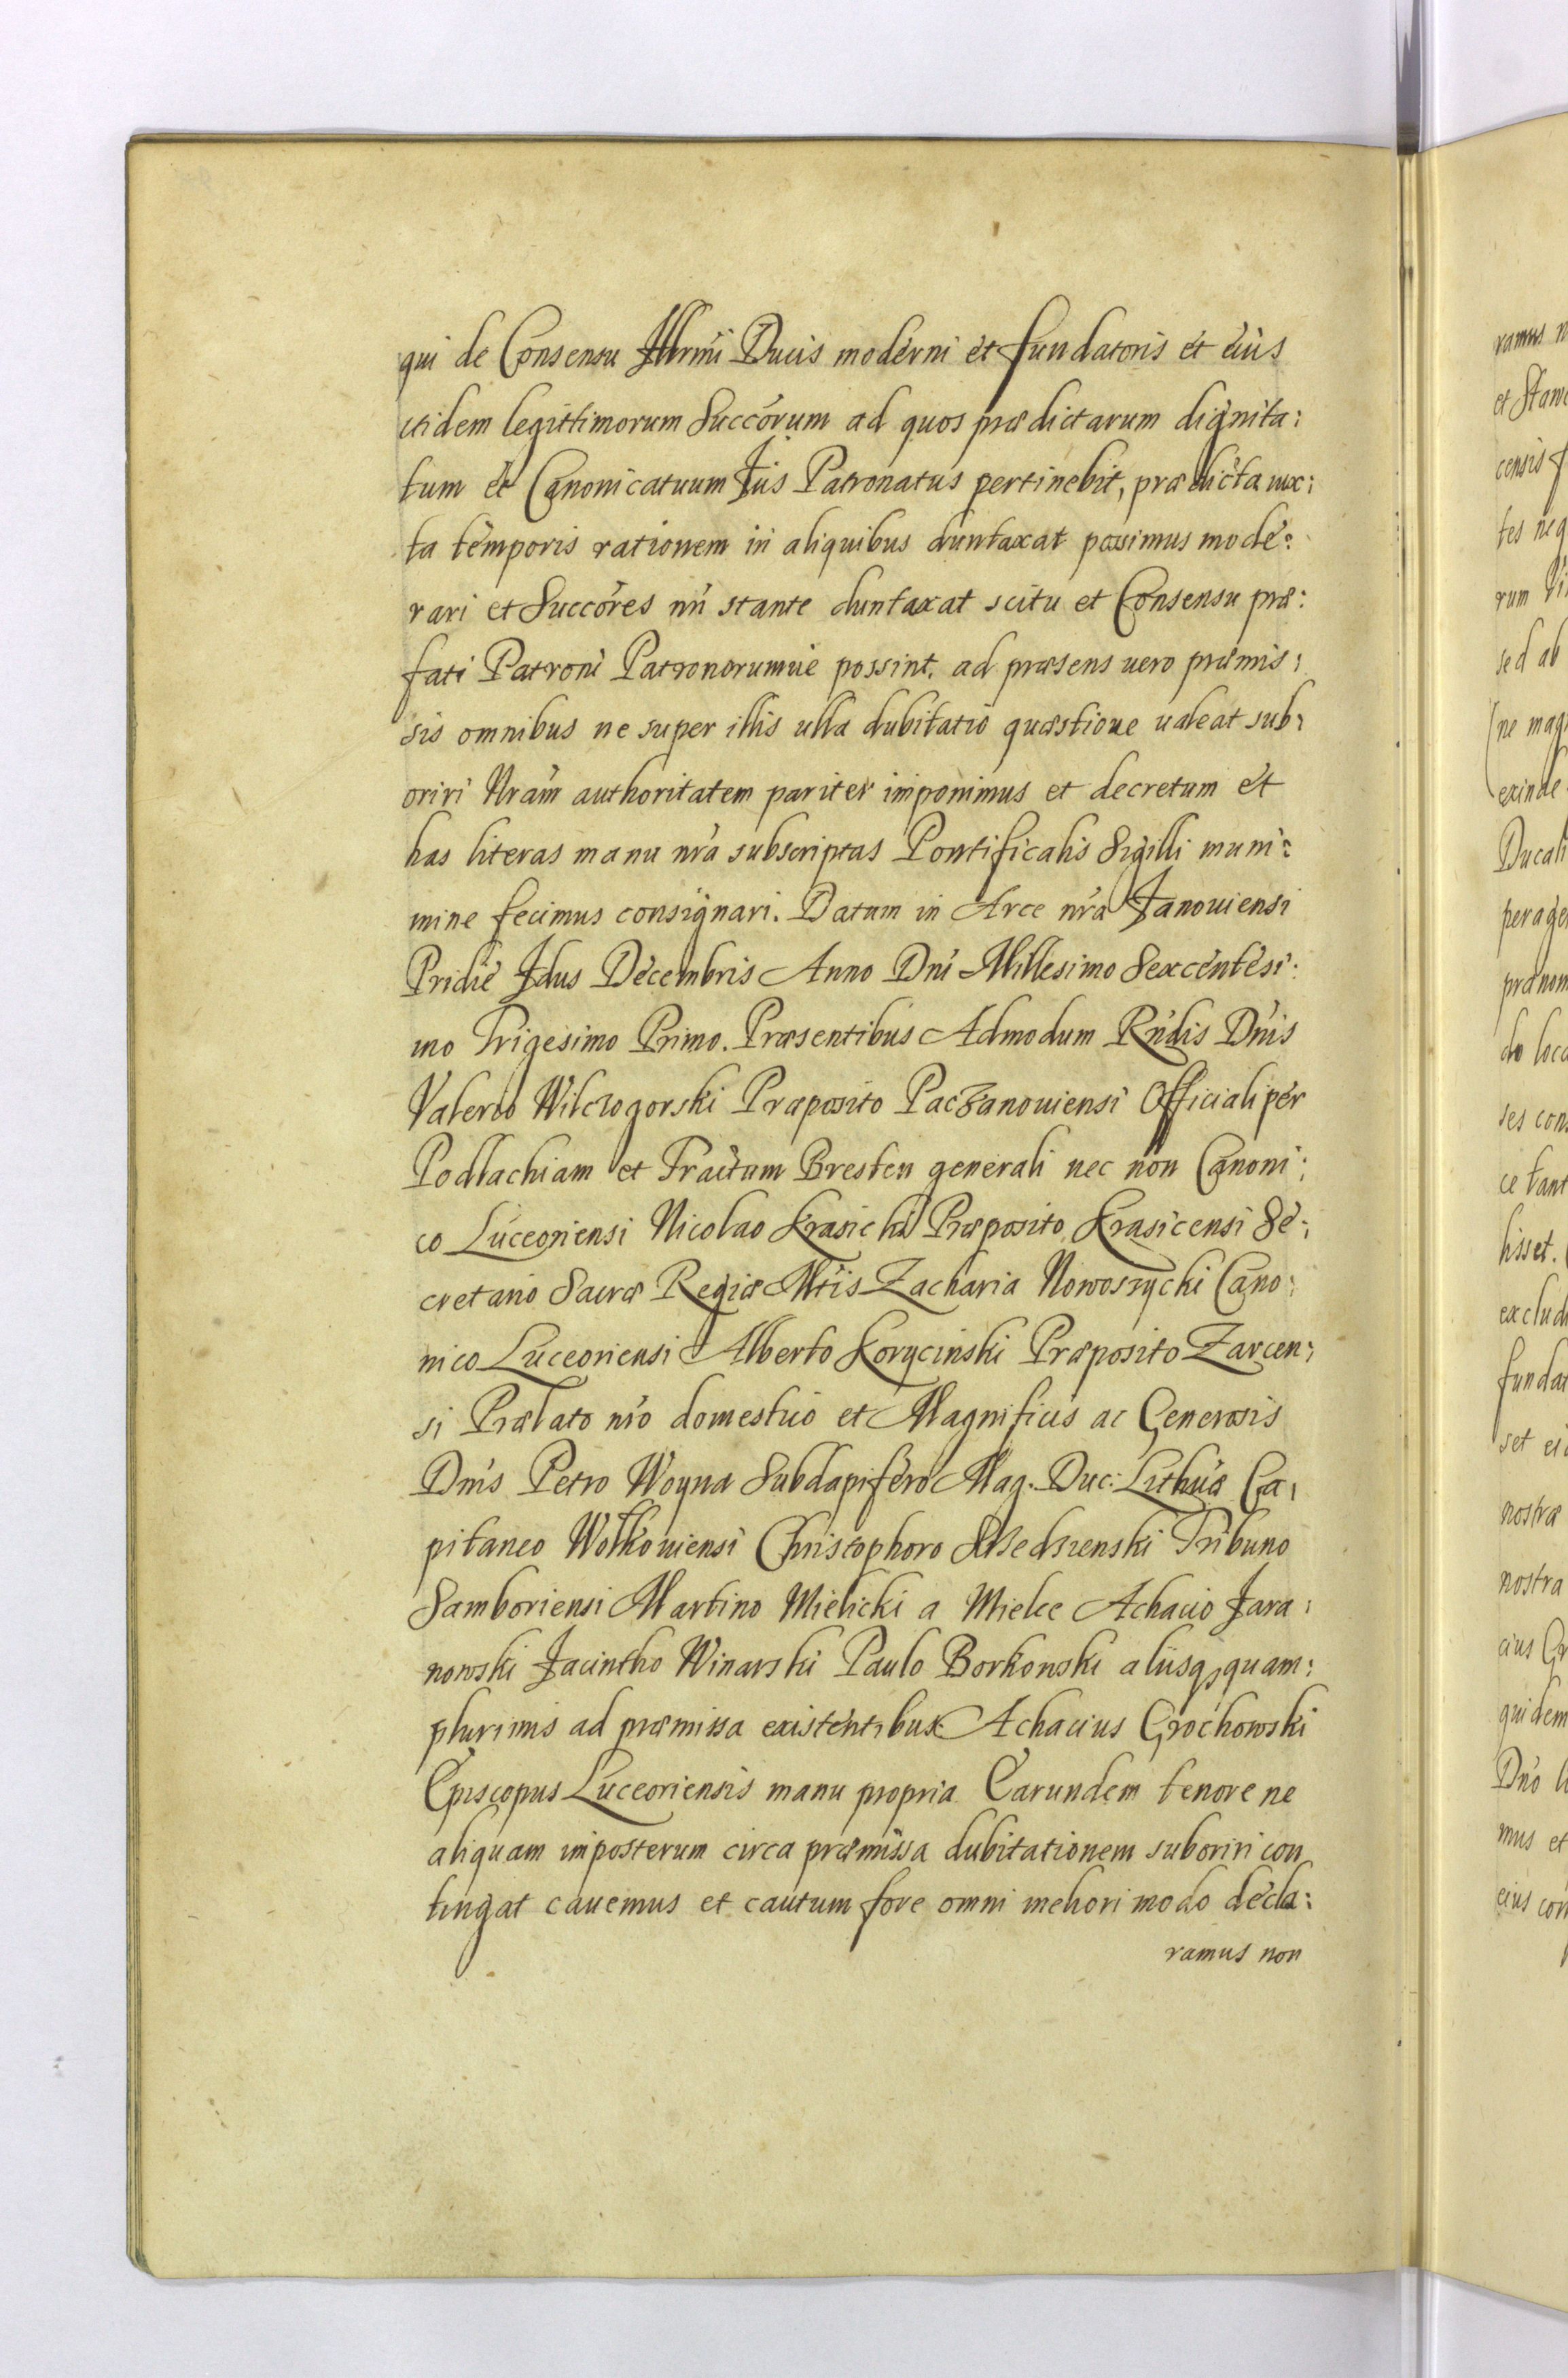 qui de Consensu Illrmi Ducis moderni et fundatoris et eius
itidem legittimorum Succorum ad quos prædictarum dignita:
tum et Canonicatuum Jus Patronatus pertinebit, prædicta iux:
ta temporis rationem in aliquibus duntaxat possimus mode:
rari et Succores nri stante duntaxat scitu et Consensu præ:
fati Patroni Patronorumue possint. ad præsens uero præmis:
sis omnibus ne super illis ulla dubitatio quæstioue ualeat sub:
oriri Nram authoritatem pariter imponimus et decretum et
has literas manu nra subscriptas Pontificalis Sigilli muni:
mine fecimus consignari. Datum in Arce nra Janouiensi
Pridie Idus Decembris Anno Dni Millesimo Sexcentesi:
mo Trigesimo Primo. Præsentibus Admodum Rndis Dnis
Valerio Wilczogorski Præposito Paczanouiensi Officiali per
Podlachiam et Tractum Bresten generali nec non Canoni:
co Luceoriensi Nicolao Krasicki Præposito Krasicensi Se:
cretario Sacræ Regiæ Mtis Zacharia Nowoszycki Cano:
nico Luceoriensi Alberto Korycinski Præposito Zarcen:
si Prælato nro domestico et Magnificis ac Generosis
Dnis Petro Woyna Subdapifero Mag. Duc: Lithuæ Ca:
pitaneo Wolkouiensi Christophoro Siedzienski Tribuno
Samboriensi Martino Mielicki a Mielce Achacio Jara:
nowski Jacintho Winarski Paulo Borkowski aliisq; quam:
plurimis ad præmissa existentibus. Achacius Grochowski
Episcopus Luceoriensis manu propria Earundem tenore ne
aliquam imposterum circa præmissa dubitationem suboriri con
tingat cauemus et cautum fore omni meliori modo decla:
ramus non